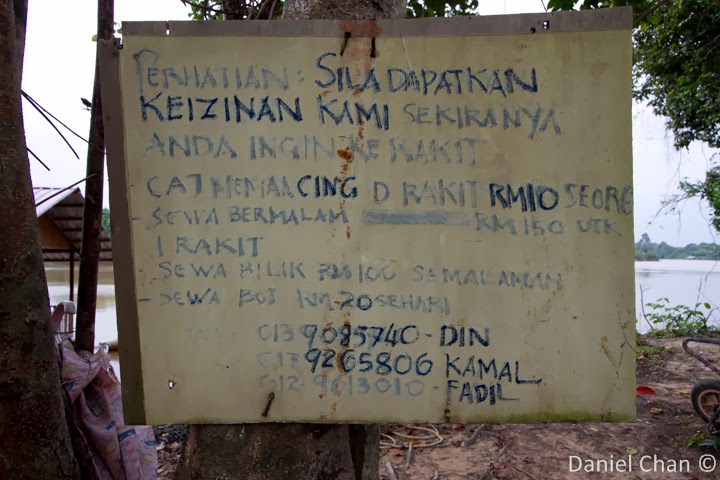 PERHATIAN : SILA DAPATKAN
KEIZINAN KAMI SEKIRANYA
ANDA INGIN KE RAKIT
- CAJ MEMANCING D RAKIT RM10 SEORG
- SEWA BERMALAM RM150 UTK
1 RAKIT
- SEWA BILIK RM100 SEMALAMAN
- SEWA BOT RM-20 SEHARI
TEL 013 9085740 - DIN
9265806 KAMAL
012 9613010 - FADIL
Daniel Chan ©